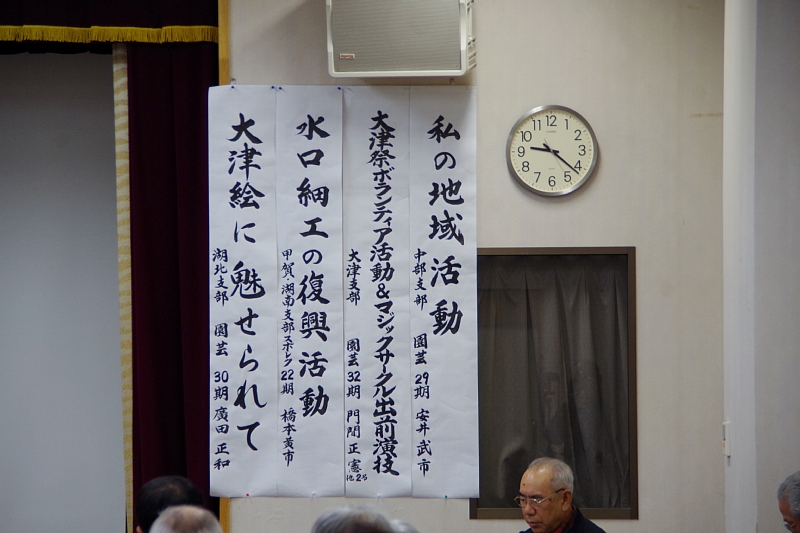 私の地域活動
中部支部 園芸 29期 安井武市
大津祭ボランティア活動&マジックサークル出前演技
大津支部 園芸 32期 門間正憲 他2名
水口細工の復興活動
甲賀・湖南支部 スポレク 22期 橋本黄市
大津絵に魅せられて
湖北支部 園芸 30期 廣田正和
12
1
2
3
4
5
6
7
8
9
10
11